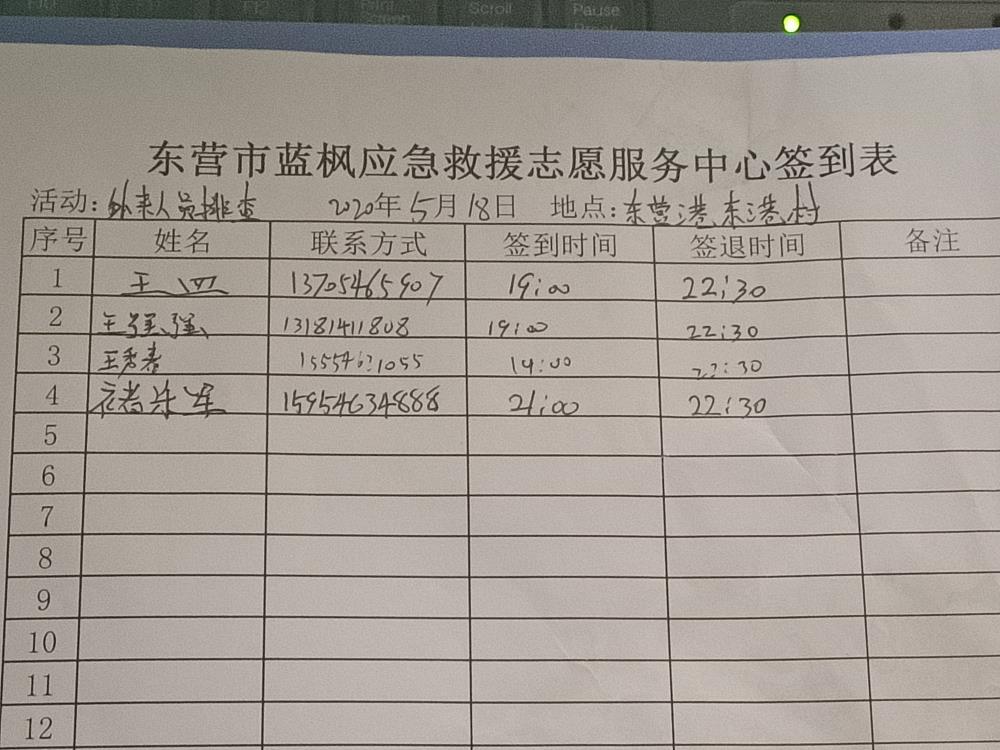 Print Screen
Scroll
Pause
东营市蓝枫应急救援志愿服务中心签到表
活动:外来人员排查 2020年5月18日 地点:东营港东港村
序号 姓名 联系方式 签到时间 签退时间 备注
1 王四 13705465907 19:00 22:30
2 王强强 13181411808 19:00 22:30
3 王秀春 15554631055 19:00 22:30
4 褚朱军 15954634888 21:00 22:30
5
6
7
8
9
10
11
12